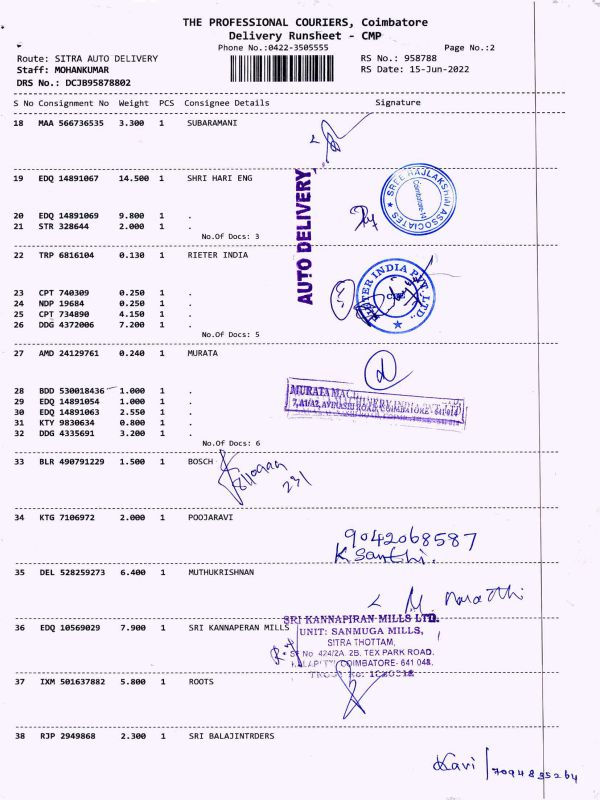 THE PROFESSIONAL COURIERS, Coimbatore
Delivery Runsheet - CMP
Phone No.:0422-3505555 Page No.:2
Route: SITRA AUTO DELIVERY RS No.: 958788
Staff: MOHANKUMAR RS Date: 15-Jun-2022
DRS No.: DCJB95878802
S No Consignment No Weight PCS Consignee Details Signature
18 MAA 566736535 3.300 1 SUBARAMANI
19 EDQ 14891067 14.500 1 SHRI HARI ENG
SREE RAJLAKSHMI ASSOCIATES
AUTO DELIVERY
20 EDQ 14891069 9.800 1 .
21 STR 328644 2.000 1 .
No.Of Docs: 3
22 TRP 6816104 0.130 1 RIETER INDIA
RIETER INDIA PVT. LTD.,
23 CPT 740309 0.250 1 .
24 NDP 19684 0.250 1 .
25 CPT 734890 4.150 1 .
26 DDG 4372006 7.200 1 .
No.Of Docs: 5
27 AMD 24129761 0.240 1 MURATA
28 BDD 530018436 1.000 1 .
MURATA MACHINERY INDIA PVT. LTD
29 EDQ 14891054 1.000 1 .
7, A1/A2, AVINASHI ROAD, COIMBATORE - 641 014
30 EDQ 14891063 2.550 1 .
31 KTY 9830634 0.800 1 .
32 DDG 4335691 3.200 1 .
No.Of Docs: 6
33 BLR 490791229 1.500 1 BOSCH
231
34 KTG 7106972 2.000 1 POOJARAVI
9042068587
K. Santhi.
35 DEL 528259273 6.400 1 MUTHUKRISHNAN
SRI KANNAPIRAN MILLS LTD.
36 EDQ 10569029 7.900 1 SRI KANNAPERAN MILLS
UNIT: SANMUGA MILLS,
SITRA THOTTAM,
SF No 424/2A, 2B, TEX PARK ROAD,
KALAPATTI, COIMBATORE- 641 048.
37 IXM 501637882 5.800 1 ROOTS
38 RJP 2949868 2.300 1 SRI BALAJINTRDERS
Kavi / 7094835264